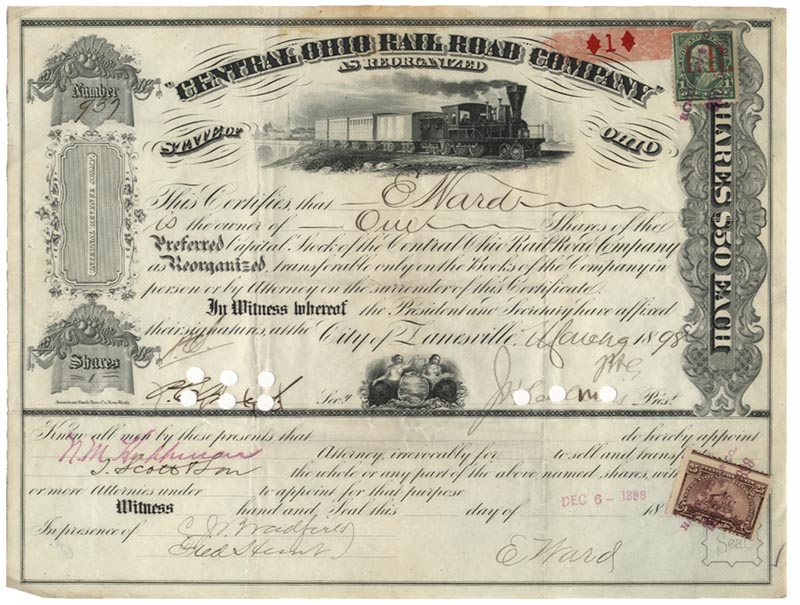 "CENTRAL OHIO RAIL ROAD COMPANY"
AS REORGANIZED
♦1♦
Number
937
STATE OF OHIO
SHARES $50 EACH
This Certifies, that E Ward
is the owner of One Shares of the
Preferred Capital Stock of the Central Ohio Rail Road Company
as Reorganized, transferable only on the Books of the Company in
person or by Attorney on the surrender of this Certificate.
In Witness whereof the President and Secretary have affixed
their signatures, at the City of Zanesville, 1898
Shares
1
Secy.
Prest.
American Bank Note Co. New York.
Know all men by these presents that do hereby appoint
Attorney, irrevocably for to sell and
J. Scott & Son
the whole or any part of the above named shares,
or more Attornies under to appoint for that purpose
Witness hand and Seal this day of 18
DEC 6 - 1898
In presence of
C J Bradfield
Fred Hunt
E Ward
Seal